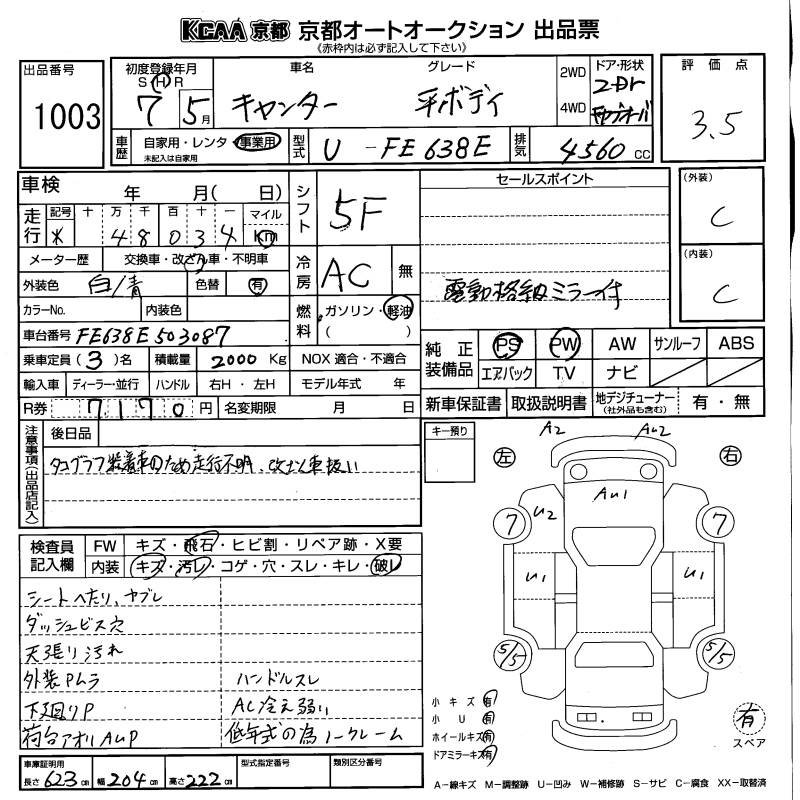 KCAA 京都 京都オートオークション 出品票
《赤枠内は必ず記入して下さい》
出品番号 1003
初度登録年月 S H R 7 5月
車名 キャンター
グレード 平ボデイ
2WD 4WD
ドア・形状 2-Dr
評価点 3.5
車歴 自家用・レンタ・事業用 未記入は自家用
型式 U-FE638E
排気 4560 cc
車検 年 月( 日)
シフト 5F
セールスポイント
電動格納ミラー付
(外装) C
(内装) C
走行 記号 十 万 千 百 十 一 マイル
* 4 8 0 3 4 Km
メーター歴 交換車・改ざん車・不明車
冷房 AC 無
外装色 白/青 色替 有
カラーNo. 内装色
燃料 ガソリン・軽油 ( )
車台番号 FE638E503087
乗車定員 (3)名 積載量 2000 Kg NOX 適合・不適合
輸入車 ディーラー・並行 ハンドル 右H・左H モデル年式 年
R券 7170円 名変期限 月 日
純正装備品 PS PW AW サンルーフ ABS
エアバック TV ナビ
新車保証書 取扱説明書 地デジチューナー (社外品も含む) 有・無
注意事項(出品店記入)
後日品
タコグラフ装着車のため走行不明、改ざん車扱い
キー預り
左 右
A2 AU2
AU1
U2
7 7
U1 U1
5/5 5/5
検査員記入欄 FW キズ・飛石・ヒビ割・リペア跡・X要
内装 キズ・汚レ・コゲ・穴・スレ・キレ・破レ
シートへたり、ヤブレ
ダッシュビス穴
天張り汚れ
外装Pムラ ハンドルスレ
下廻りP AC冷え弱い
荷台アオリAUP 低年式の為ノークレーム
小キズ 有
小U 有
ホイールキズ 有
ドアミラーキズ 有
有 スペア
車庫証明用 長さ 623 cm 幅 204 cm 高さ 222 cm
型式指定番号 類別区分番号
A-線キズ M-調整跡 U-凹み W-補修跡 S-サビ C-腐食 XX-取替済